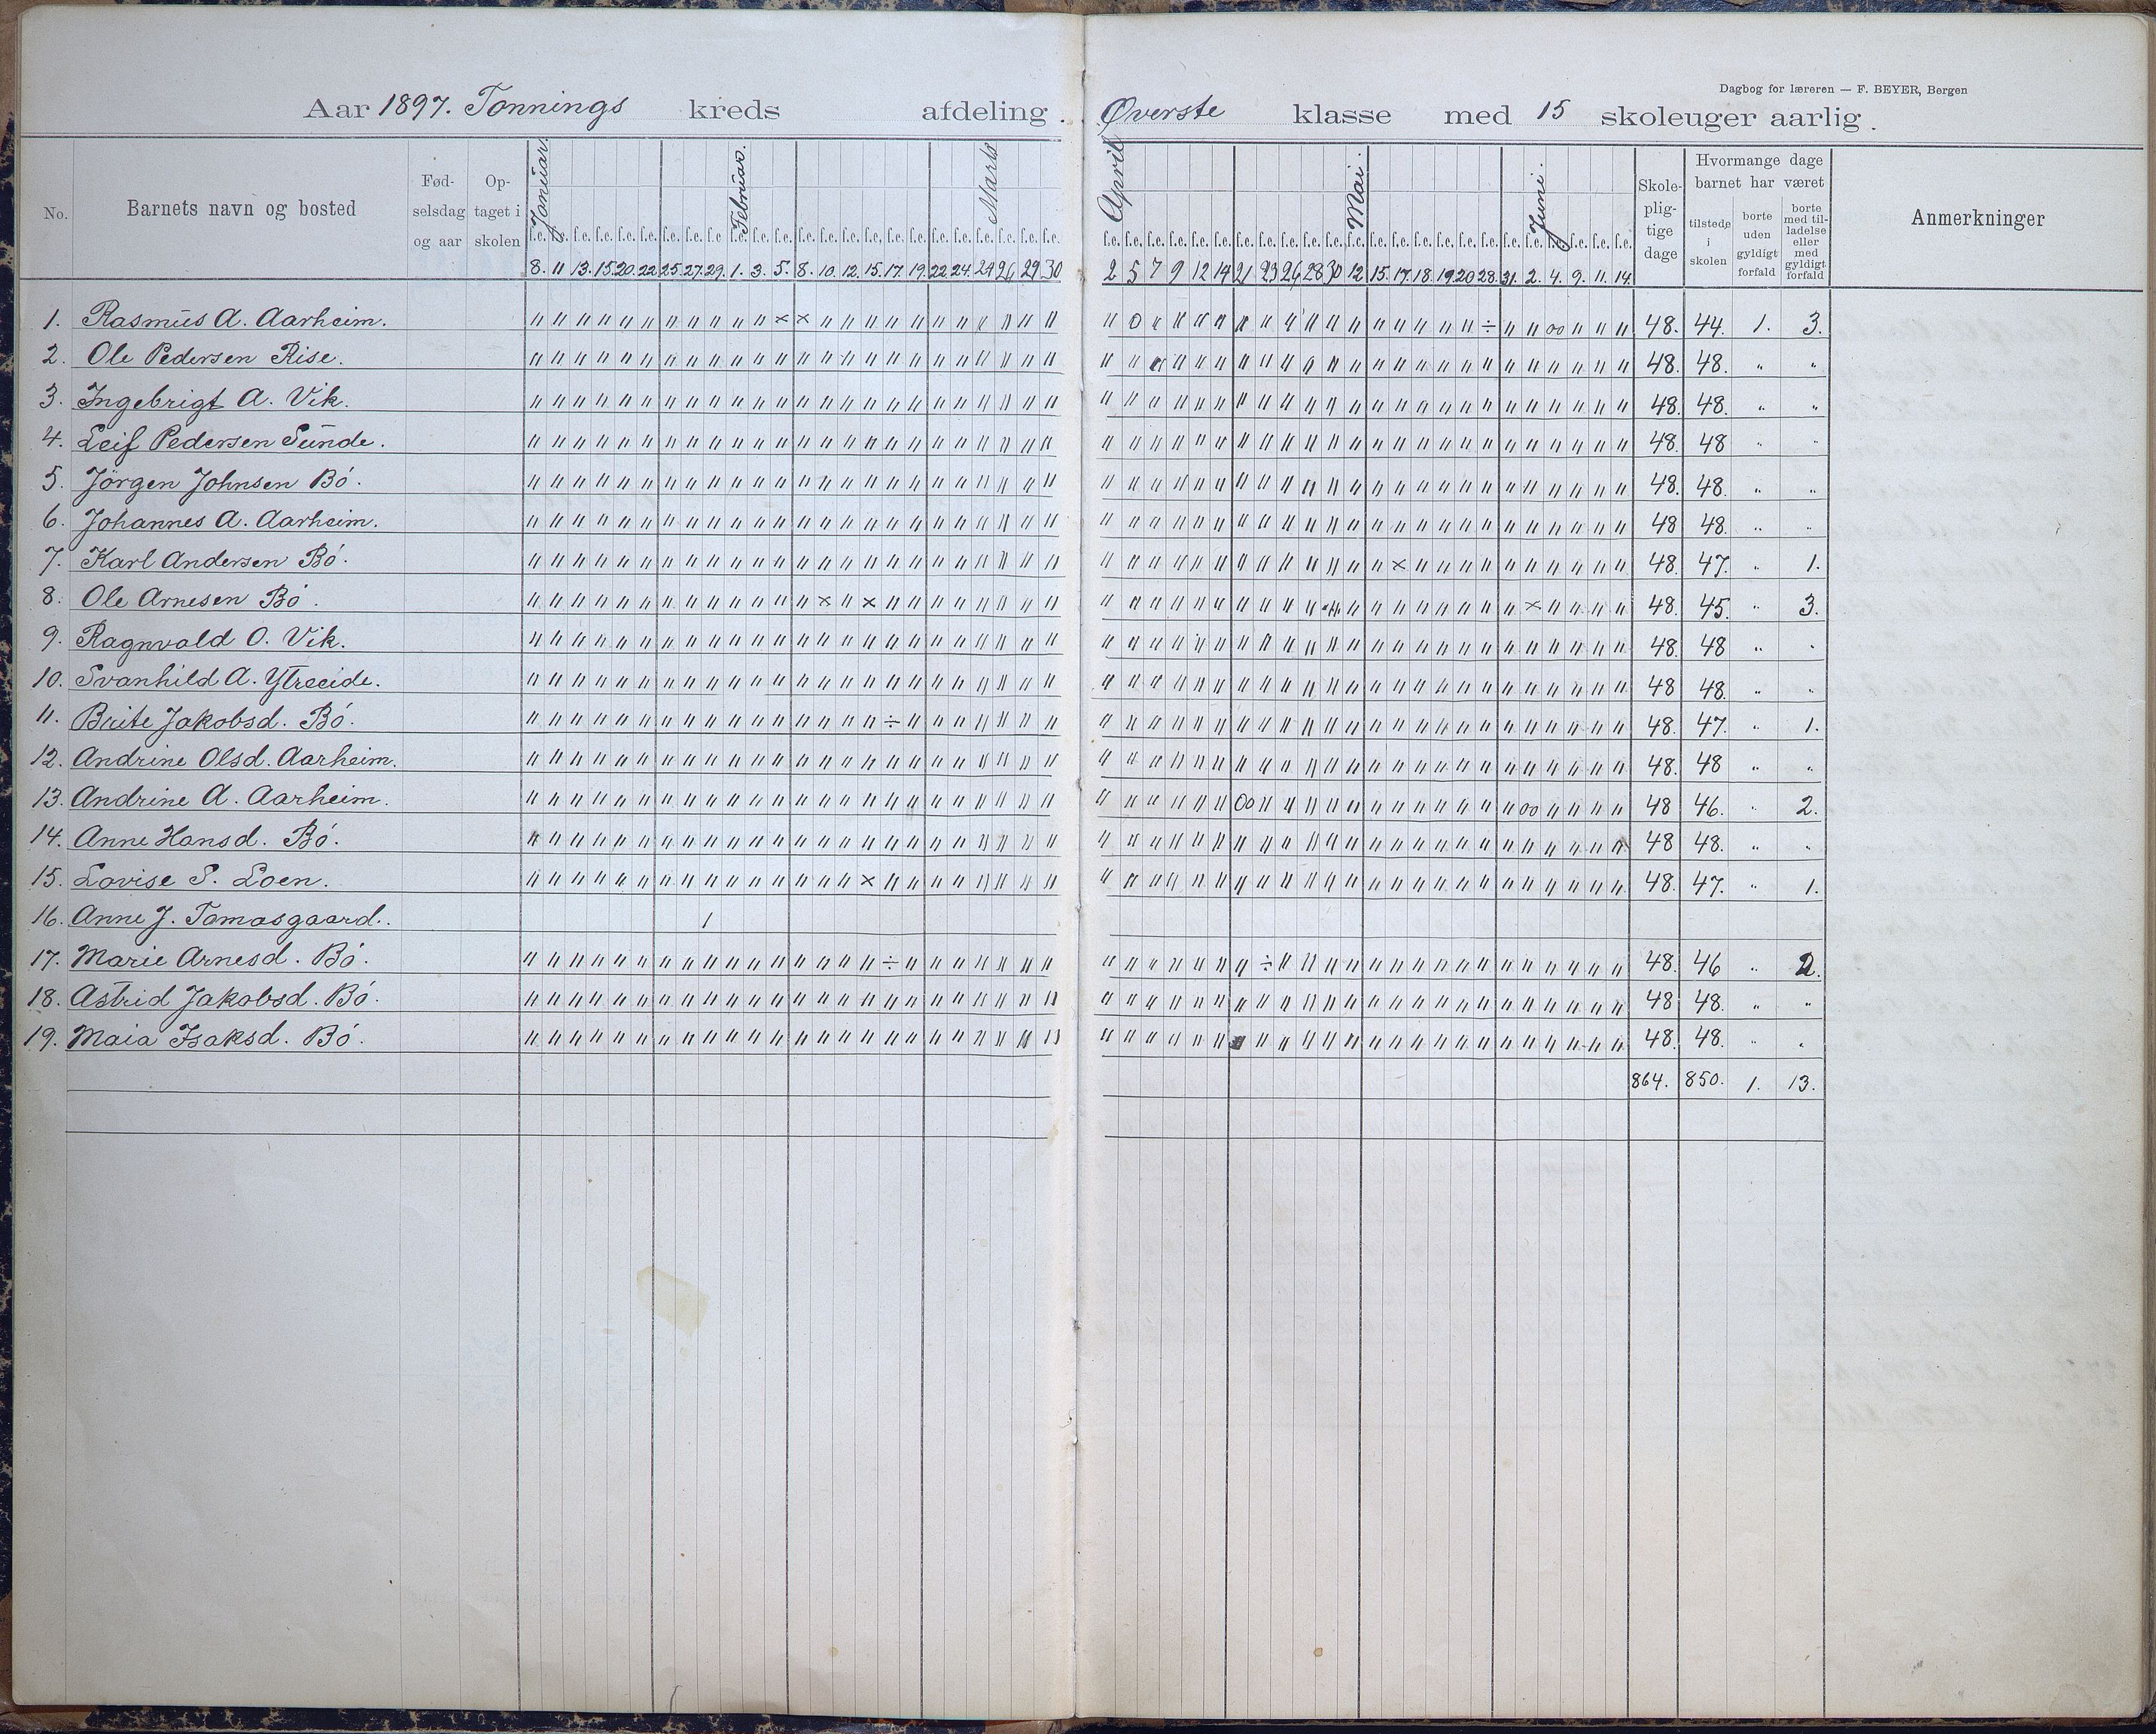 Dagbog for læreren — F. BEYER, Bergen
Aar 1897. Tonnings kreds afdeling. Øverste klasse med 15 skoleuger aarlig.
No. Barnets navn og bosted Fød-selsdag og aar Op-taget i skolen Januar. Februar. Marts April Mai. Juni. Skole-plig-tige dage Hvormange dage barnet har været tilstede i skolen borte uden gyldigt forfald borte med til-ladelse eller med gyldigt forfald Anmerkninger
8. 11 13. 15. 20. 22 25. 27. 29. 1. 3. 5. 8. 10. 12. 15. 17. 19. 22. 24. 24 26 29 30 2 5 7 9 12 14 21 23 26 28 30 12. 15. 17. 18. 19. 20 28. 31. 2. 4. 9. 11. 14.
1. Rasmus A. Aarheim. 48. 44. 1. 3.
2. Ole Pedersen Rise. 48. 48. " "
3. Ingebrigt A. Vik. 48. 48. " "
4. Leif Pedersen Sunde. 48. 48 " "
5. Jörgen Johnsen Bó. 48. 48. " "
6. Johannes A. Aarheim. 48 48. " "
7. Karl Andersen Bó. 48. 47. " 1.
8. Ole Arnesen Bó. 48. 45. " 3.
9. Ragnvald O. Vik. 48. 48 " "
10. Svanhild A. Ytreeide. 48 48. " "
11. Brite Jakobsd. Bó. 48. 47. " 1.
12. Andrine Olsd. Aarheim. 48. 48 " "
13. Andrine A. Aarheim. 48 46. " 2.
14. Anne Hansd. Bó. 48 48. " "
15. Lovise S. Loen. 48. 47. " 1.
16. Anne J. Tomasgaard.
17. Marie Arnesd. Bó. 48. 46 " 2.
18. Astrid Jakobsd. Bó. 48 48. " "
19. Maia Isaksd. Bó. 48. 48. " "
864. 850. 1. 13.